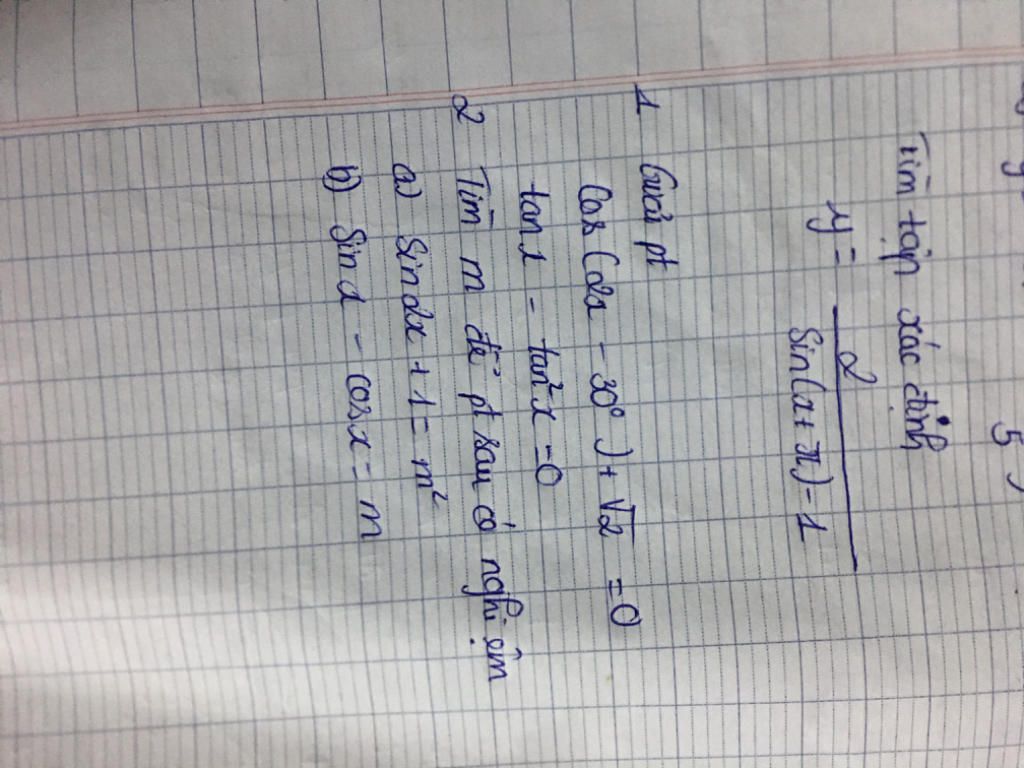 Tìm tập xác định
y = 2 / sin(x + π) - 1
1 Giải pt
Cos(2x - 30°) + √2 = 0
tan x - tan²x = 0
2 Tìm m để pt sau có nghiệm
a) Sin2x + 1 = m²
b) Sin x - cos x = m